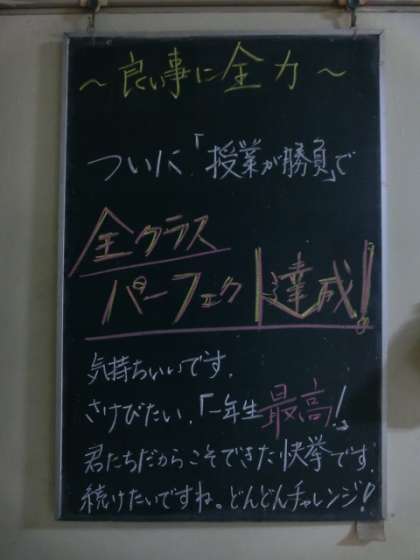 ～良い事に全力～
ついに「授業が勝負」で
全クラス
パーフェクト達成!
気持ちいいです.
さけびたい.「一年生最高!」
君たちだからこそできた快挙です.
続けたいですね。どんどんチャレンジ!